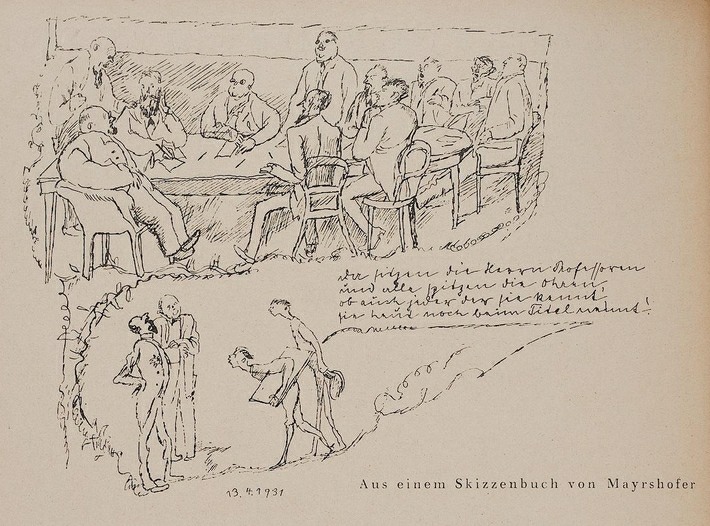 Da sitzen die Herrn Professoren
und alle spitzen die Ohren,
ob auch jeder der sie kennt,
sie heut noch beim Titel nennt!
13.4.1931
Aus einem Skizzenbuch von Mayrshofer